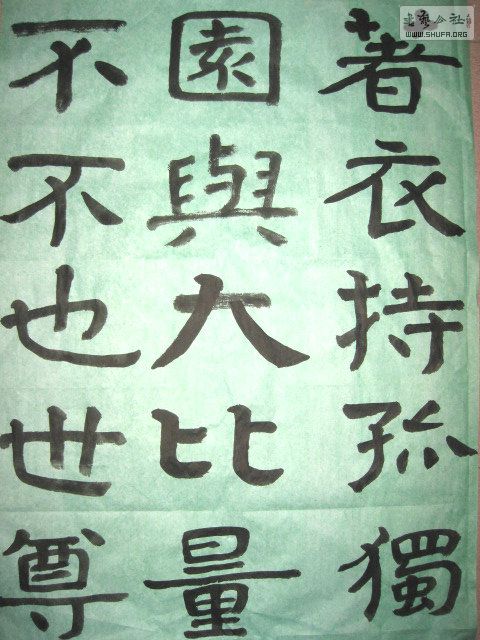 著衣持孤獨
園與大比量
不不也世尊
WWW.SHUFA.ORG